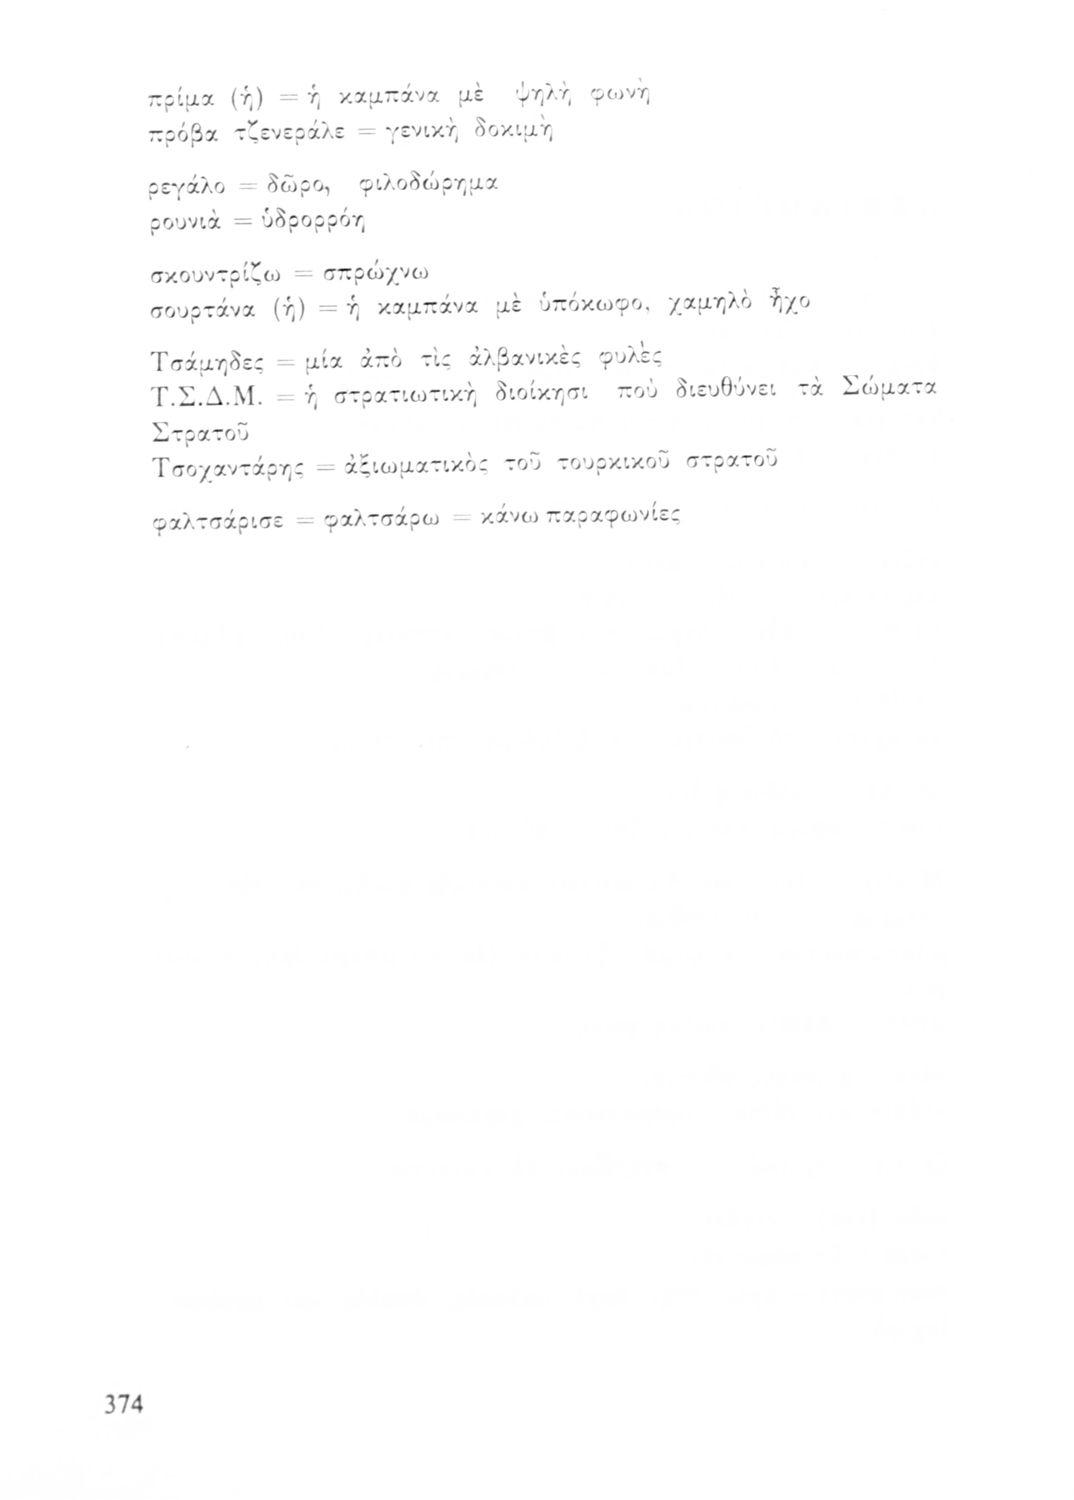 πρίμα (ἡ) = ἡ καμπάνα μὲ ψηλὴ φωνὴ
πρόβα τζενεράλε = γενικὴ δοκιμὴ
ρεγάλο = δῶρο, φιλοδώρημα
ρουνιὰ = ὑδρορρόη
σκουντρίζω = σπρώχνω
σουρτάνα (ἡ) = ἡ καμπάνα μὲ ὑπόκωφο, χαμηλὸ ἦχο
Τσάμηδες = μία ἀπὸ τὶς ἀλβανικὲς φυλὲς
Τ.Σ.Δ.Μ. = ἡ στρατιωτικὴ διοίκησι ποὺ διευθύνει τὰ Σώματα
Στρατοῦ
Τσοχαντάρης = ἀξιωματικὸς τοῦ τουρκικοῦ στρατοῦ
φαλτσάρισε = φαλτσάρω = κάνω παραφωνίες
374